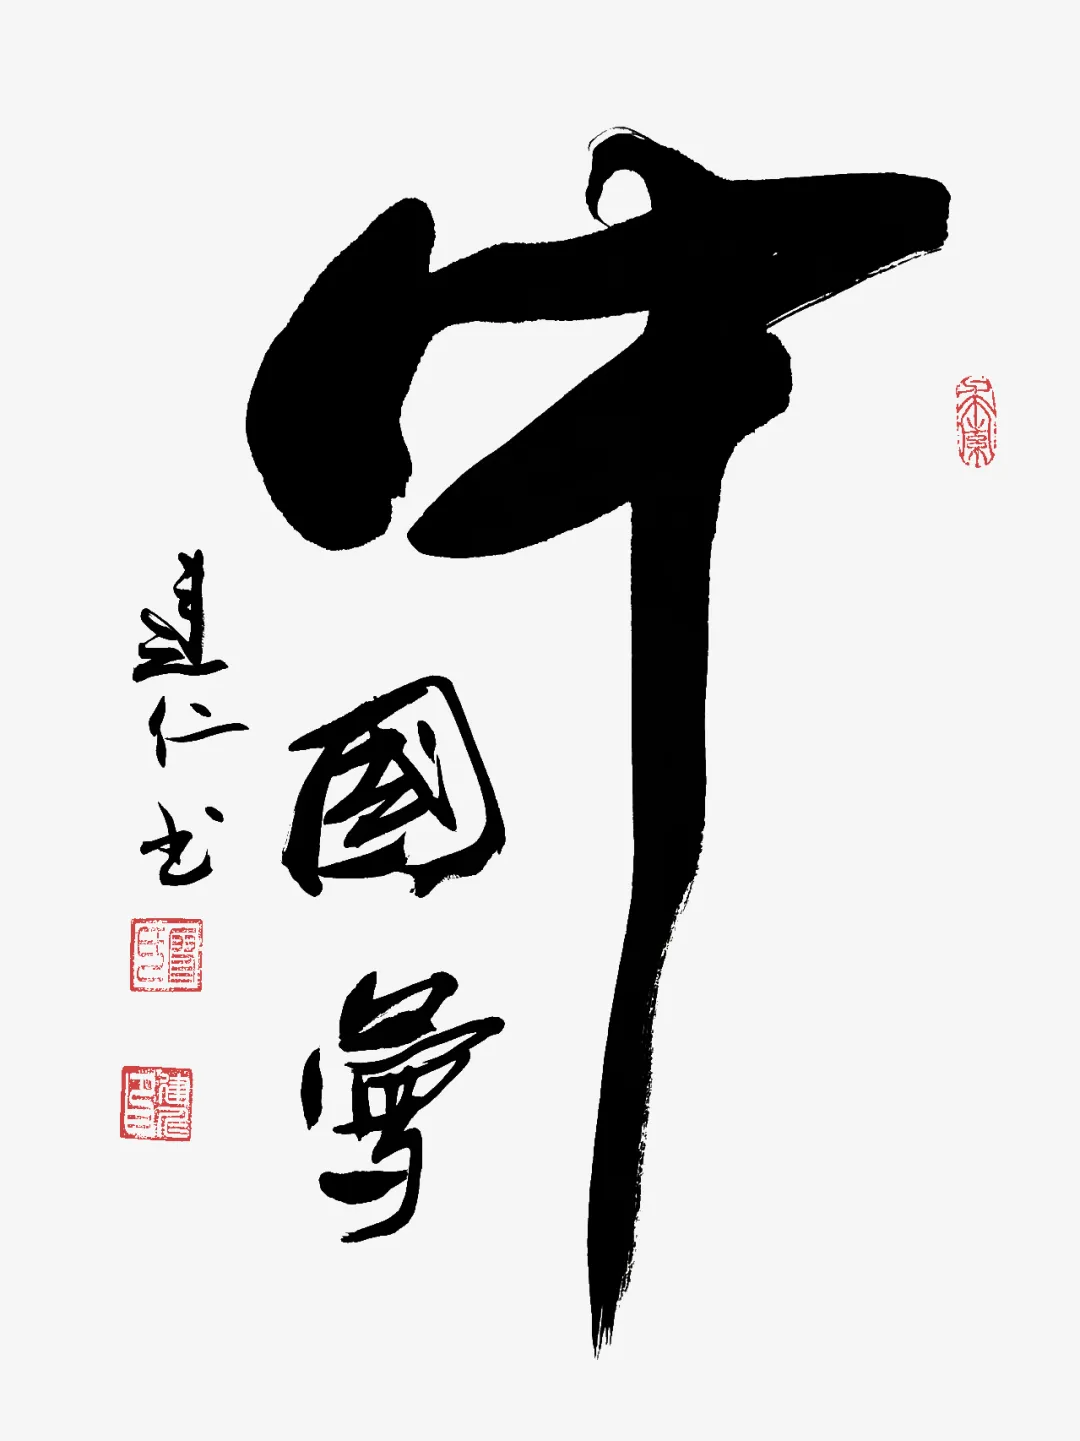 中國夢
建仁书